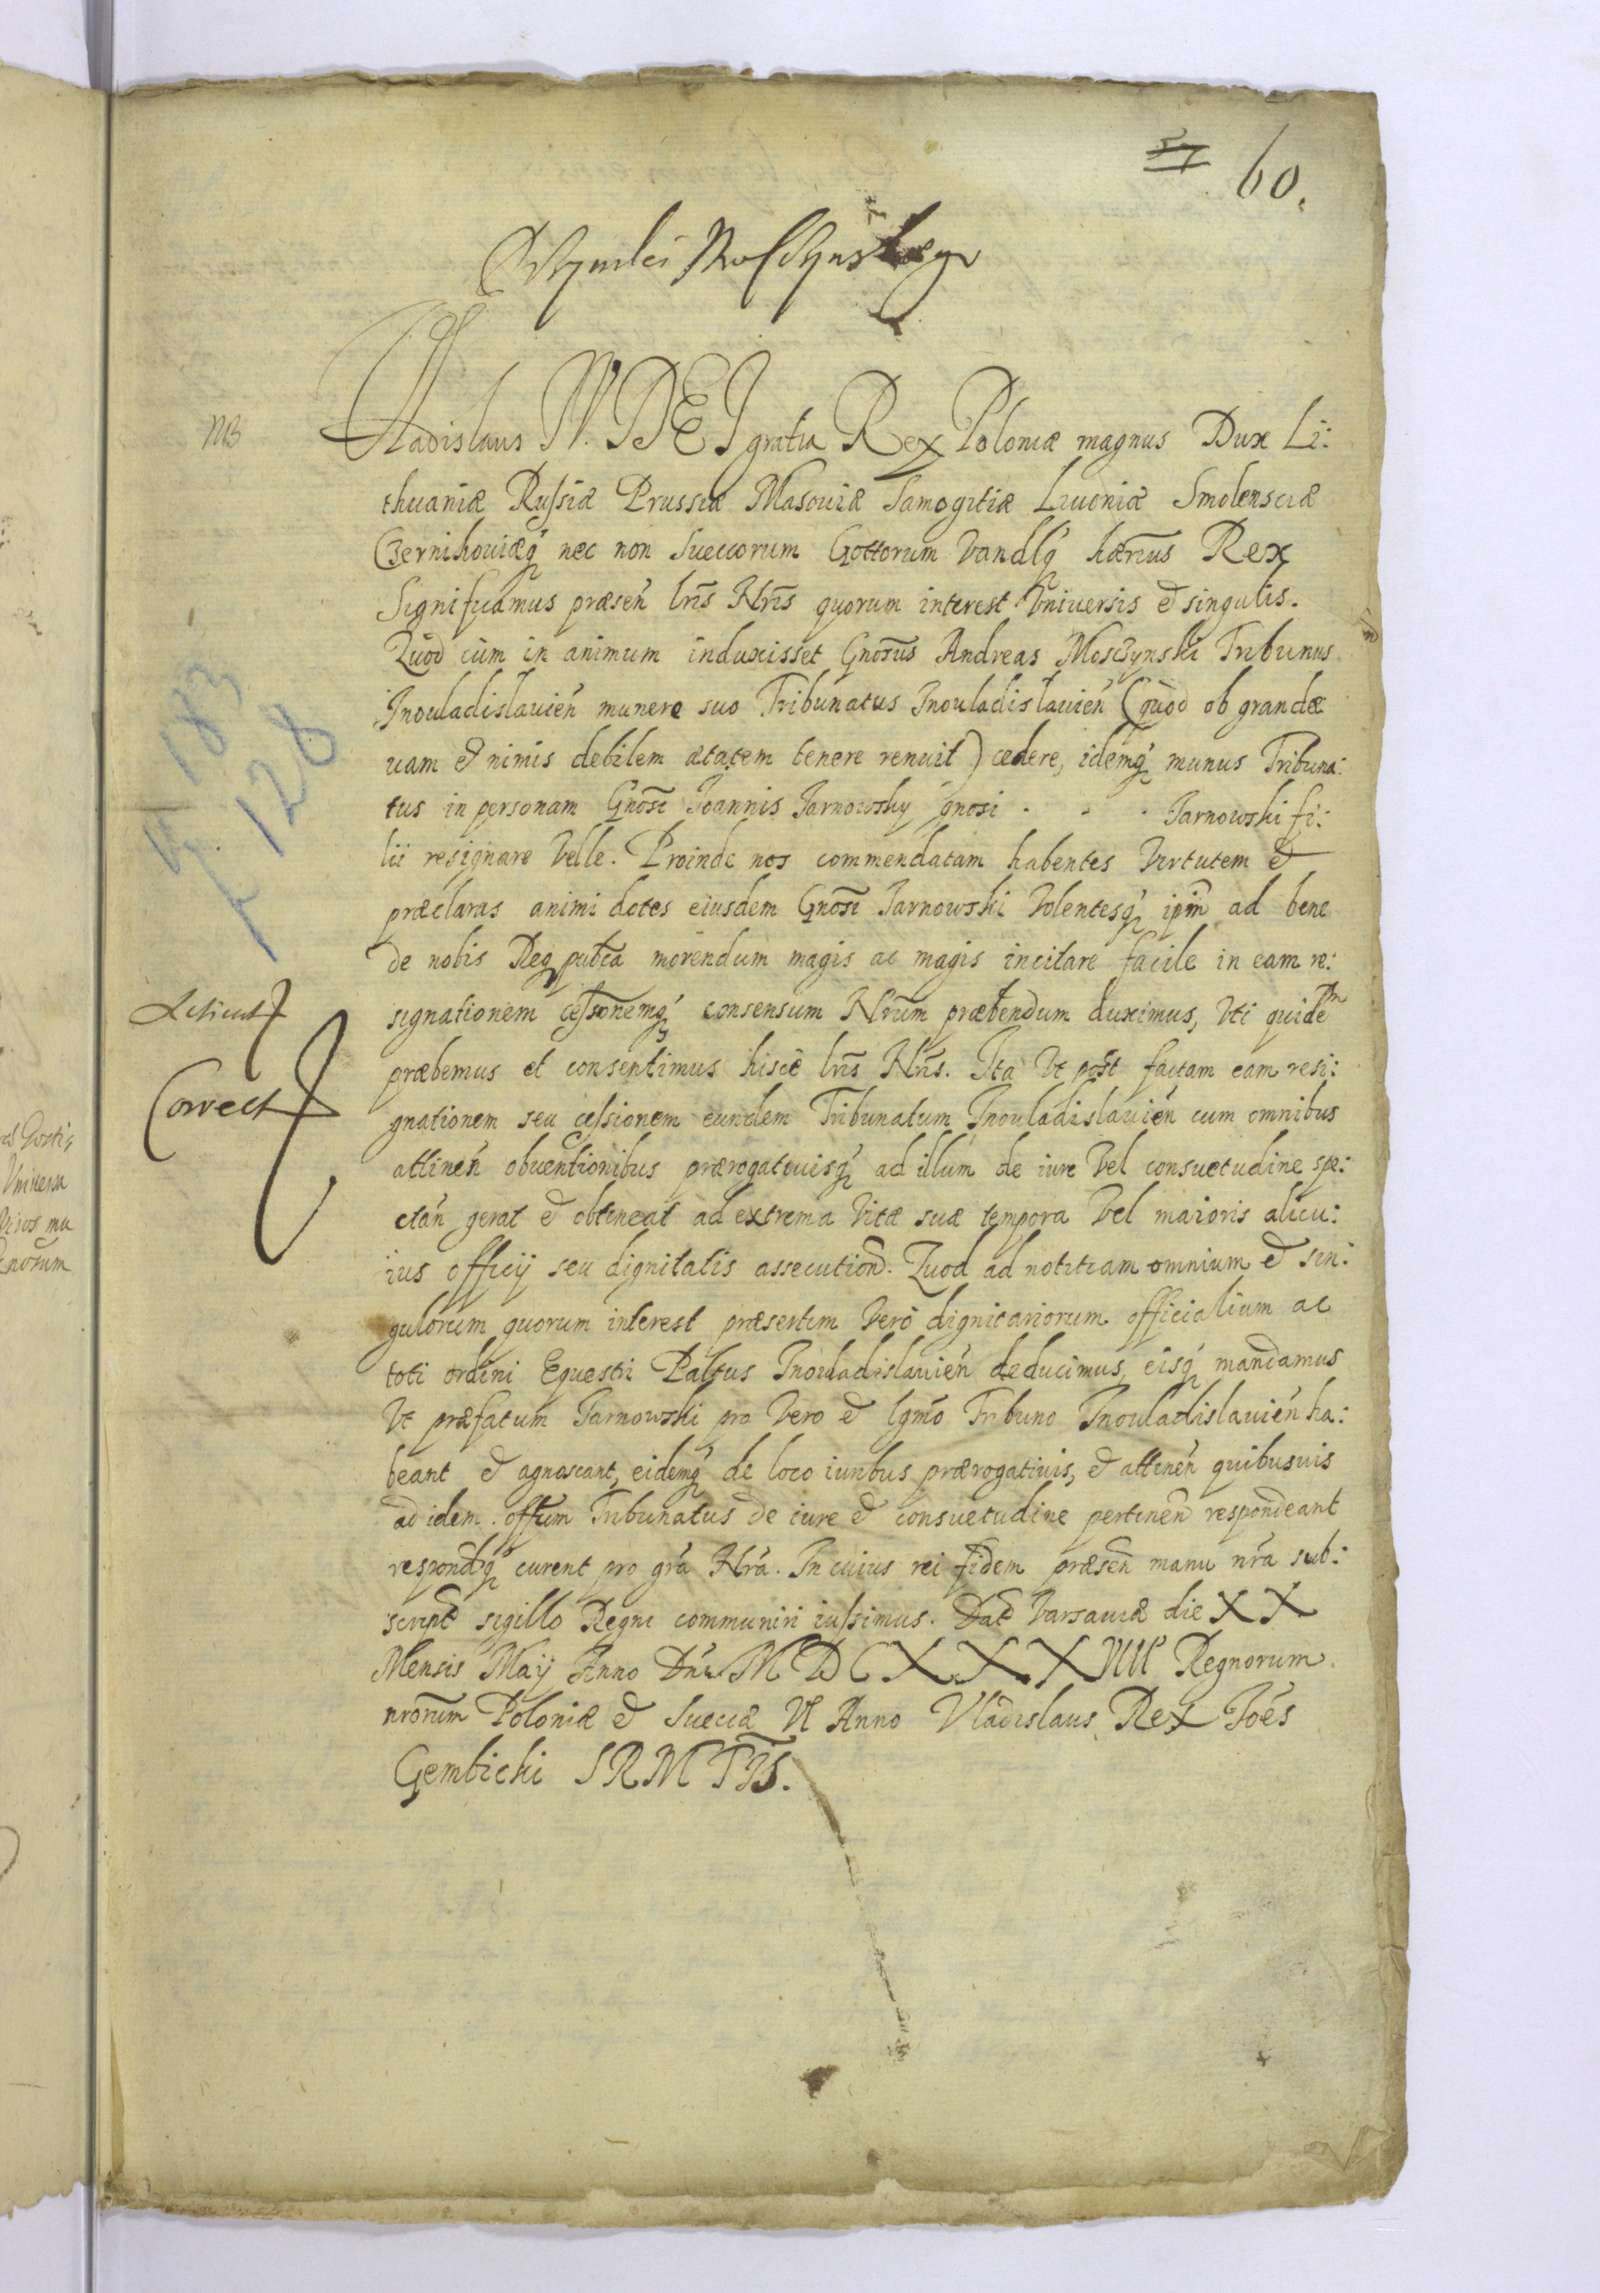 60.
Vladislaus IV. DEI gratia Rex Poloniæ magnus Dux Li:
thuaniæ Russiæ Prussiæ Masoviæ Samogitiæ Livoniæ Smolensciæ
Czernihoviæq́ nec non Suecorum Gottorum Vandlq́ hærius Rex
Significamus præsen̄ lrīs Nrīs quorum interest Vniversis et singulis.
Quod cùm in animum induxisset Gnōsus Andreas Mosczynski Tribunus
Inouladislavien̄ munere suo Tribunatus Inouladislavien̄ (quod ob grandæ
uam et nimis debilem ætatem tenere renuit) cedere, idemq́ munus Tribuna:
tus in personam Gnōsi Joannis Jarnowsky gnosi - - - Jarnowski fi:
lii resignare velle. Proinde nos commendatam habentes Virtutem et
præclaras animi dotes eiusdem Gnōsi Jarnowski Volentesq́ ipm̄ ad bene
de nobis Req publca merendum magis ac magis incitare facile in eam re:
signationem cessionemq́ consensum Nrūm præbendum duximus, Vti quidem
præbemus et consentimus hisce lrīs Nrīs. Ita Vt post factam eam resi:
gnationem seu cessionem eundem Tribunatum Inouladislavien̄ cum omnibus
attinen̄ obventionibus prærogativisq́ ad illum de iure Vel consuetudine spe:
ctan̄ gerat et obtineat ad extrema Vitæ suæ tempora Vel maioris alicu:
ius officij seu dignitatis assecution̄. Quod ad notitiam omnium et sin:
gulorum quorum interest præsertim Vero dignitariorum officialium ac
toti ordini Equestri Paltus Inouladislavien̄ deducimus, eisq́ mandamus
Vt præfatum Jarnowski pro Vero et lgmō Tribuno Inouladislavien̄ ha:
beant et agnoscant, eidemq́ de loco iuribus prærogativis, et attinen̄ quibusvis
ad idem offum Tribunatus de iure et consuetudine pertinen̄ respondeant
respondiq́ curent pro grā Nrā. In cuius rei fidem præsen̄ manu nrā sub:
script sigillo Regni communiri iussimus. Dat Varsaviæ die XX
Mensis Maij Anno Dnī MDCXXXVIII Regnorum
nrōrum Poloniæ et Sueciæ VI Anno Vladislaus Rex Joēs
Gembicki SRM
NB
183
128
Correct